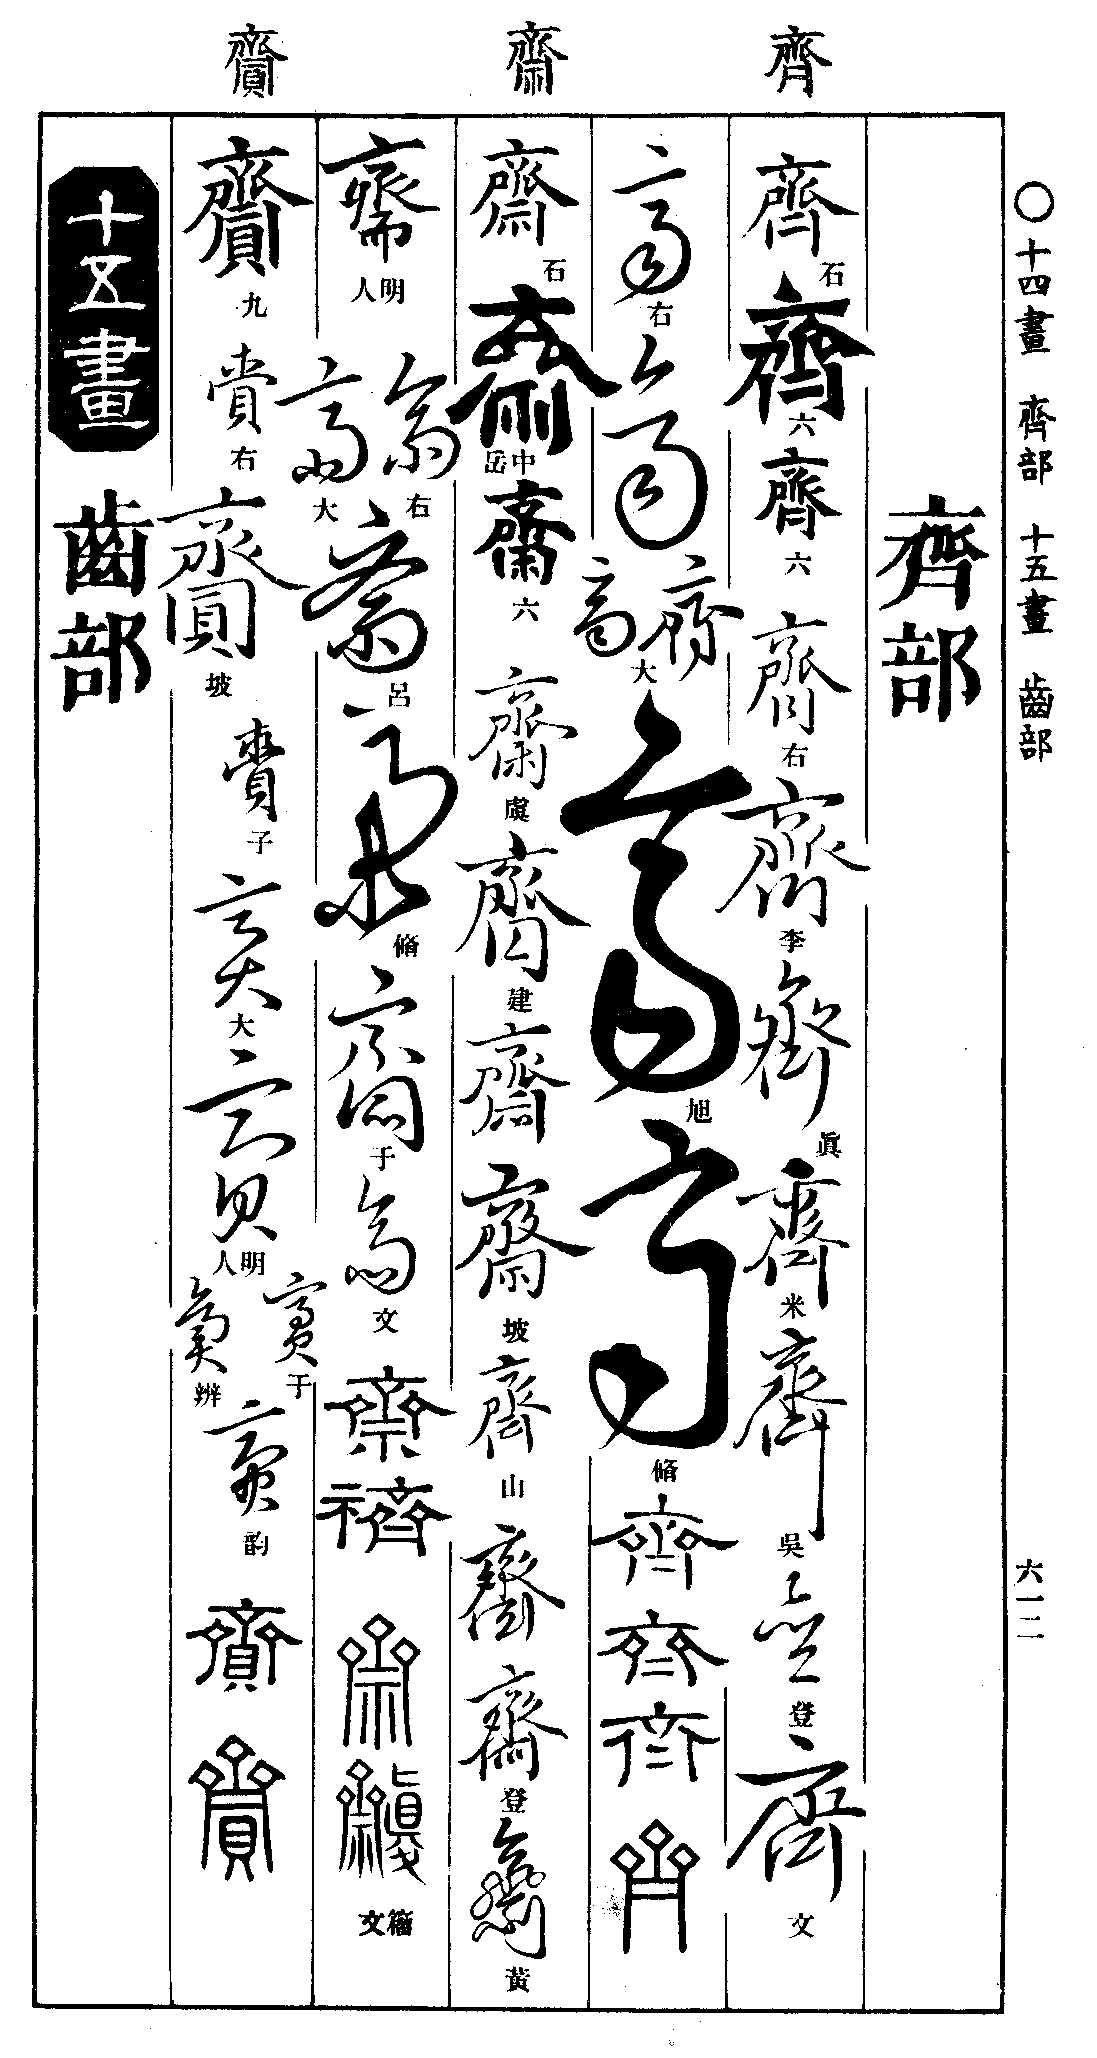 齊 齋 齎
○十四畫 齊部 十五畫 齒部
六一二
齊部
齊 石 齊 六 齊 六 齊 右 齊 李 齊 眞 齊 米 齊 吳 齊 登 齊 文
齊 右 齊 齊 齊 大 齊 旭 齊 脩 齊 齊 齊 齊
齋 石 齋 中岳 齋 六 齋 虞 齋 建 齋 齋 坡 齋 山 齋 齋 登 齋 黃
齋 明人 齋 右 齋 大 齋 呂 齋 脩 齋 于 齋 文 齋 齋 齋 籀文
齎 九 齎 右 齎 坡 齎 子 齎 大 齎 明人 齎 于 齎 辨 齎 韵 齎 齎
十五畫
齒部